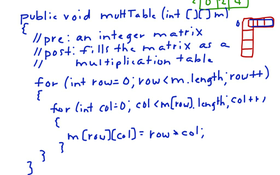 0 2 4
public void multTable (int [][] m)
0
{ //pre: an integer matrix
//post: fills the matrix as a
// multiplication table
for (int row=0; row<m.length; row++)
{
for (int col=0; col<m[row].length; col++)
{
m[row][col] = row * col;
}
}
}